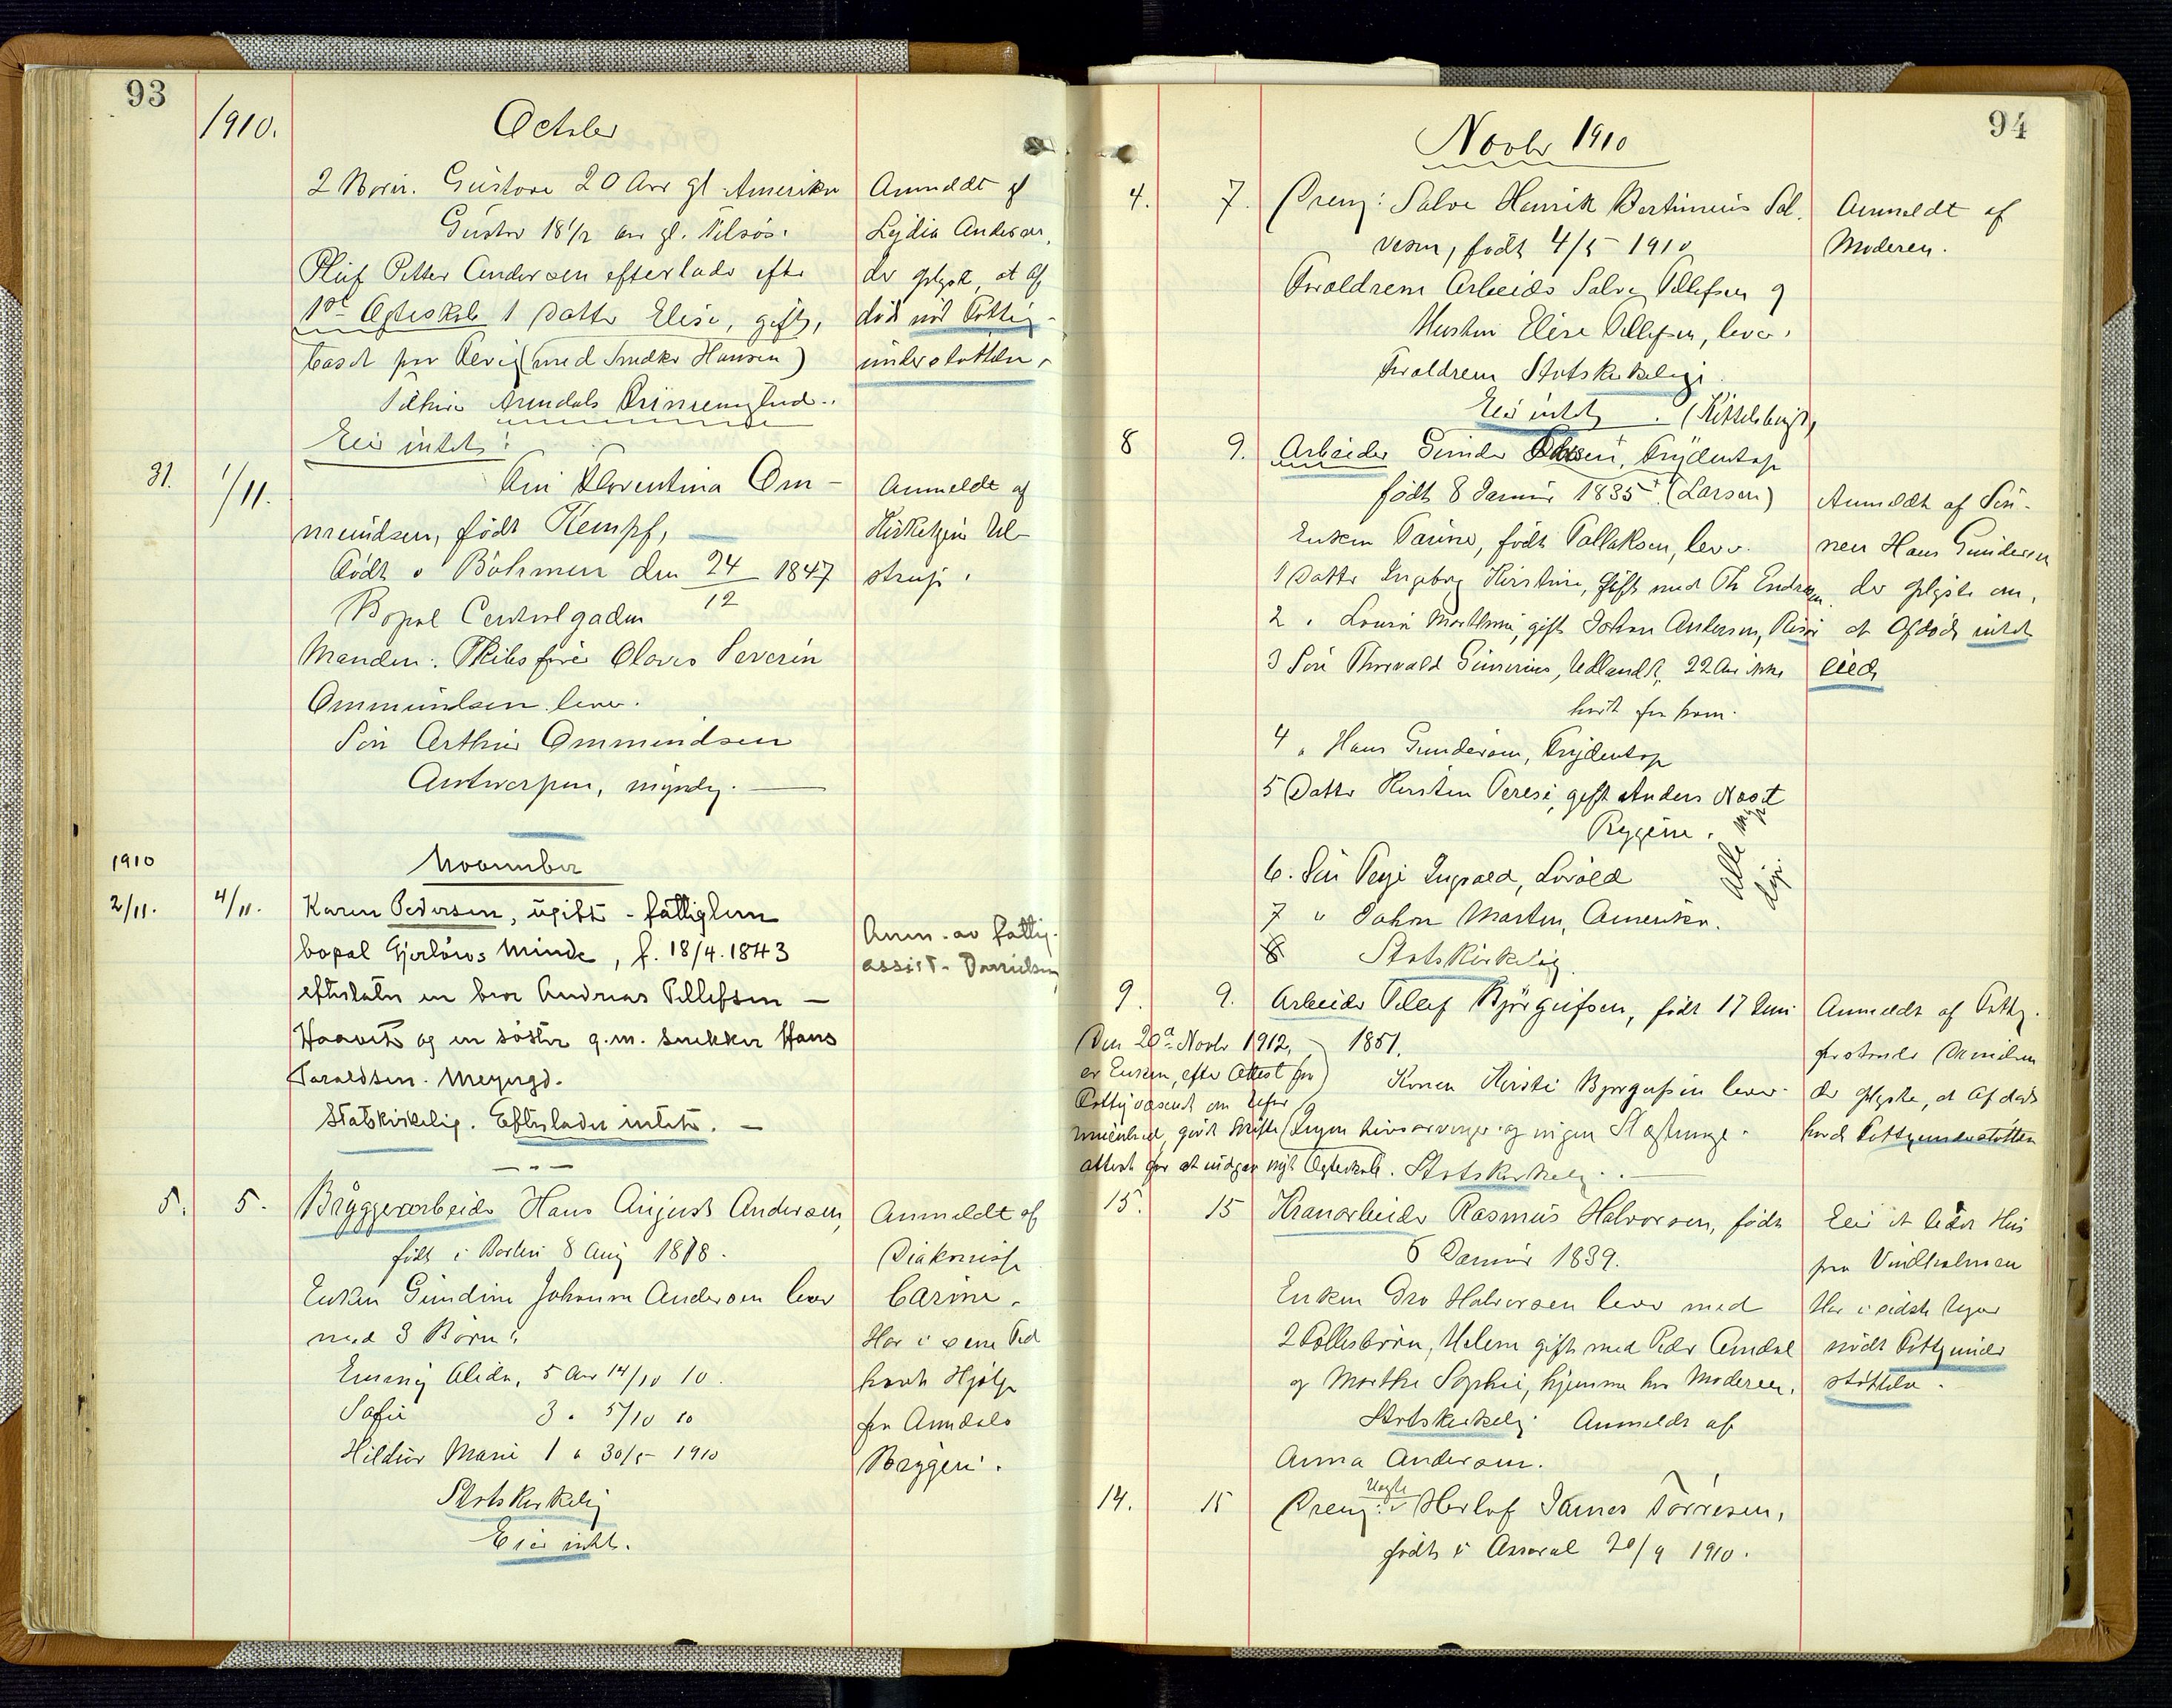 93
1910.
October
2 Börn. Gustava 20 Aar gl. Amerika
Gustav 18 1/2 aar gl. Tilsøs.
Anmeldt af
Lydia Andersen,
Petter Andersen efterlader efter
1ste Ægteskab 1 Datter Elise, gift,
bosat paa (med Smedker Hansen)
der oplyste, at Af
død nöd Fattig-
understøttelse.
Tilhører Arendals
Eier intet.
31.
1/11.
Florentina Om-
mundsen, født Kempf,
Født i Böhmen den 24/12 1847
Bopæl Centralgaden
Manden: Skibsfører Olaves Severin
Ommundsen lever.
Sön Arthur Ommundsen
Antwerpen, myndig.
Anmeldt af
Kirketjener Ul-
strup.
1910
November
2/11.
4/11.
Karen Pedersen, ugift - fattiglem
bopæl Gjerløws Minde, f. 18/4.1843
efterlater en bror Andreas Tellefsen —
og en søster g.m. snekker Hans
Taraldsen. Meyergd.
Statskirkelig. Efterlader intet. —
Anm. av fattig-
assist. Danielsen
5.
5.
Bryggerarbeider Hans August Andersen,
født i Barbu 8 Aug 1878.
Enken Gundine Johanne Andersen lever
med 3 Börn:
Emmy Alida, 5 Aar 14/10 10.
Sofie 3 " 5/10 10
Hildur Marie 1 " 30/5 - 1910
Statskirkelig
Eier intet.
Anmeldt af
Diakonisse
Carine.
Har i senere Tid
havt Hjælp
fra Arendals
Bryggeri.
94
Novbr 1910
4.
7.
Dreng: Salve Henrik Bertinius Sal-
vesen, født 4/5 - 1910
Forældrene Arbeider Salve Tellefsen og
Hustru Elise Tellefsen, lever.
Forældrene Statskirkelige.
Eier intet. (Kittelsbugt)
Anmeldt af
Moderen.
8
9.
Arbeider Gunder Olsen, Frydentop
født 8 Januar 1835 (Larsen)
Enken Tarine, født Tallaksen, lever.
1 Datter Ingeborg Kirstine, gift med Th. Endresen
2 " Lovise Marthine, gift Johan Andersen, Risør
3 Sön Thorvald Gunerius, Udlandet, 22 Aar ikke
hørt fra ham.
4 " Hans Gundersen, Frydentop
5 Datter Kirsten Terese, gift Anders Næset
Rygene.
6. Sön Terje Ingvald, Lovold
7 " Johan Martin, Amerika.
alle myn
dige
8 Statskirkelig.
Anmeldt af Sön-
nen Hans Gundersen
der oplyste om,
at Afdøde intet
eied
9.
9.
Arbeider Tellef Bjørguifsen, født 17 Juni
1851.
Konen Kirsti Bjørgufsen lever
(Ingen Livsarvinger og ingen Slægtninge.
Statskirkelig.
Den 20de Novbr 1912,
er Enken, efter Attest fra
Fattigvæsenet om Uefor
muenhed, givet Skifte
attest for at indgaa nyt Ægteskab.
Anmeldt af Fattig-
forstander Danielsen
der oplyste, at Afdøde
havde Fattigunderstøttelse
15.
15
Kranarbeider Rasmus Halvorsen, født
5 Januar 1839.
Enken Gro Halvorsen lever med
2 Fællesbörn, Helene gift med Peder Arndal
og Marthe Sophie, hjemme hos Moderen.
Statskirkelig. Anmeldt af
Anna Andersen.
Eier et lidet Hus
paa Vindholmen
Har i sidste Uger
nydt Fattigunder
støttelse.
14.
15
Dreng: Uægte Herlof James Torresen,
født i Asseral 20/9 1910.